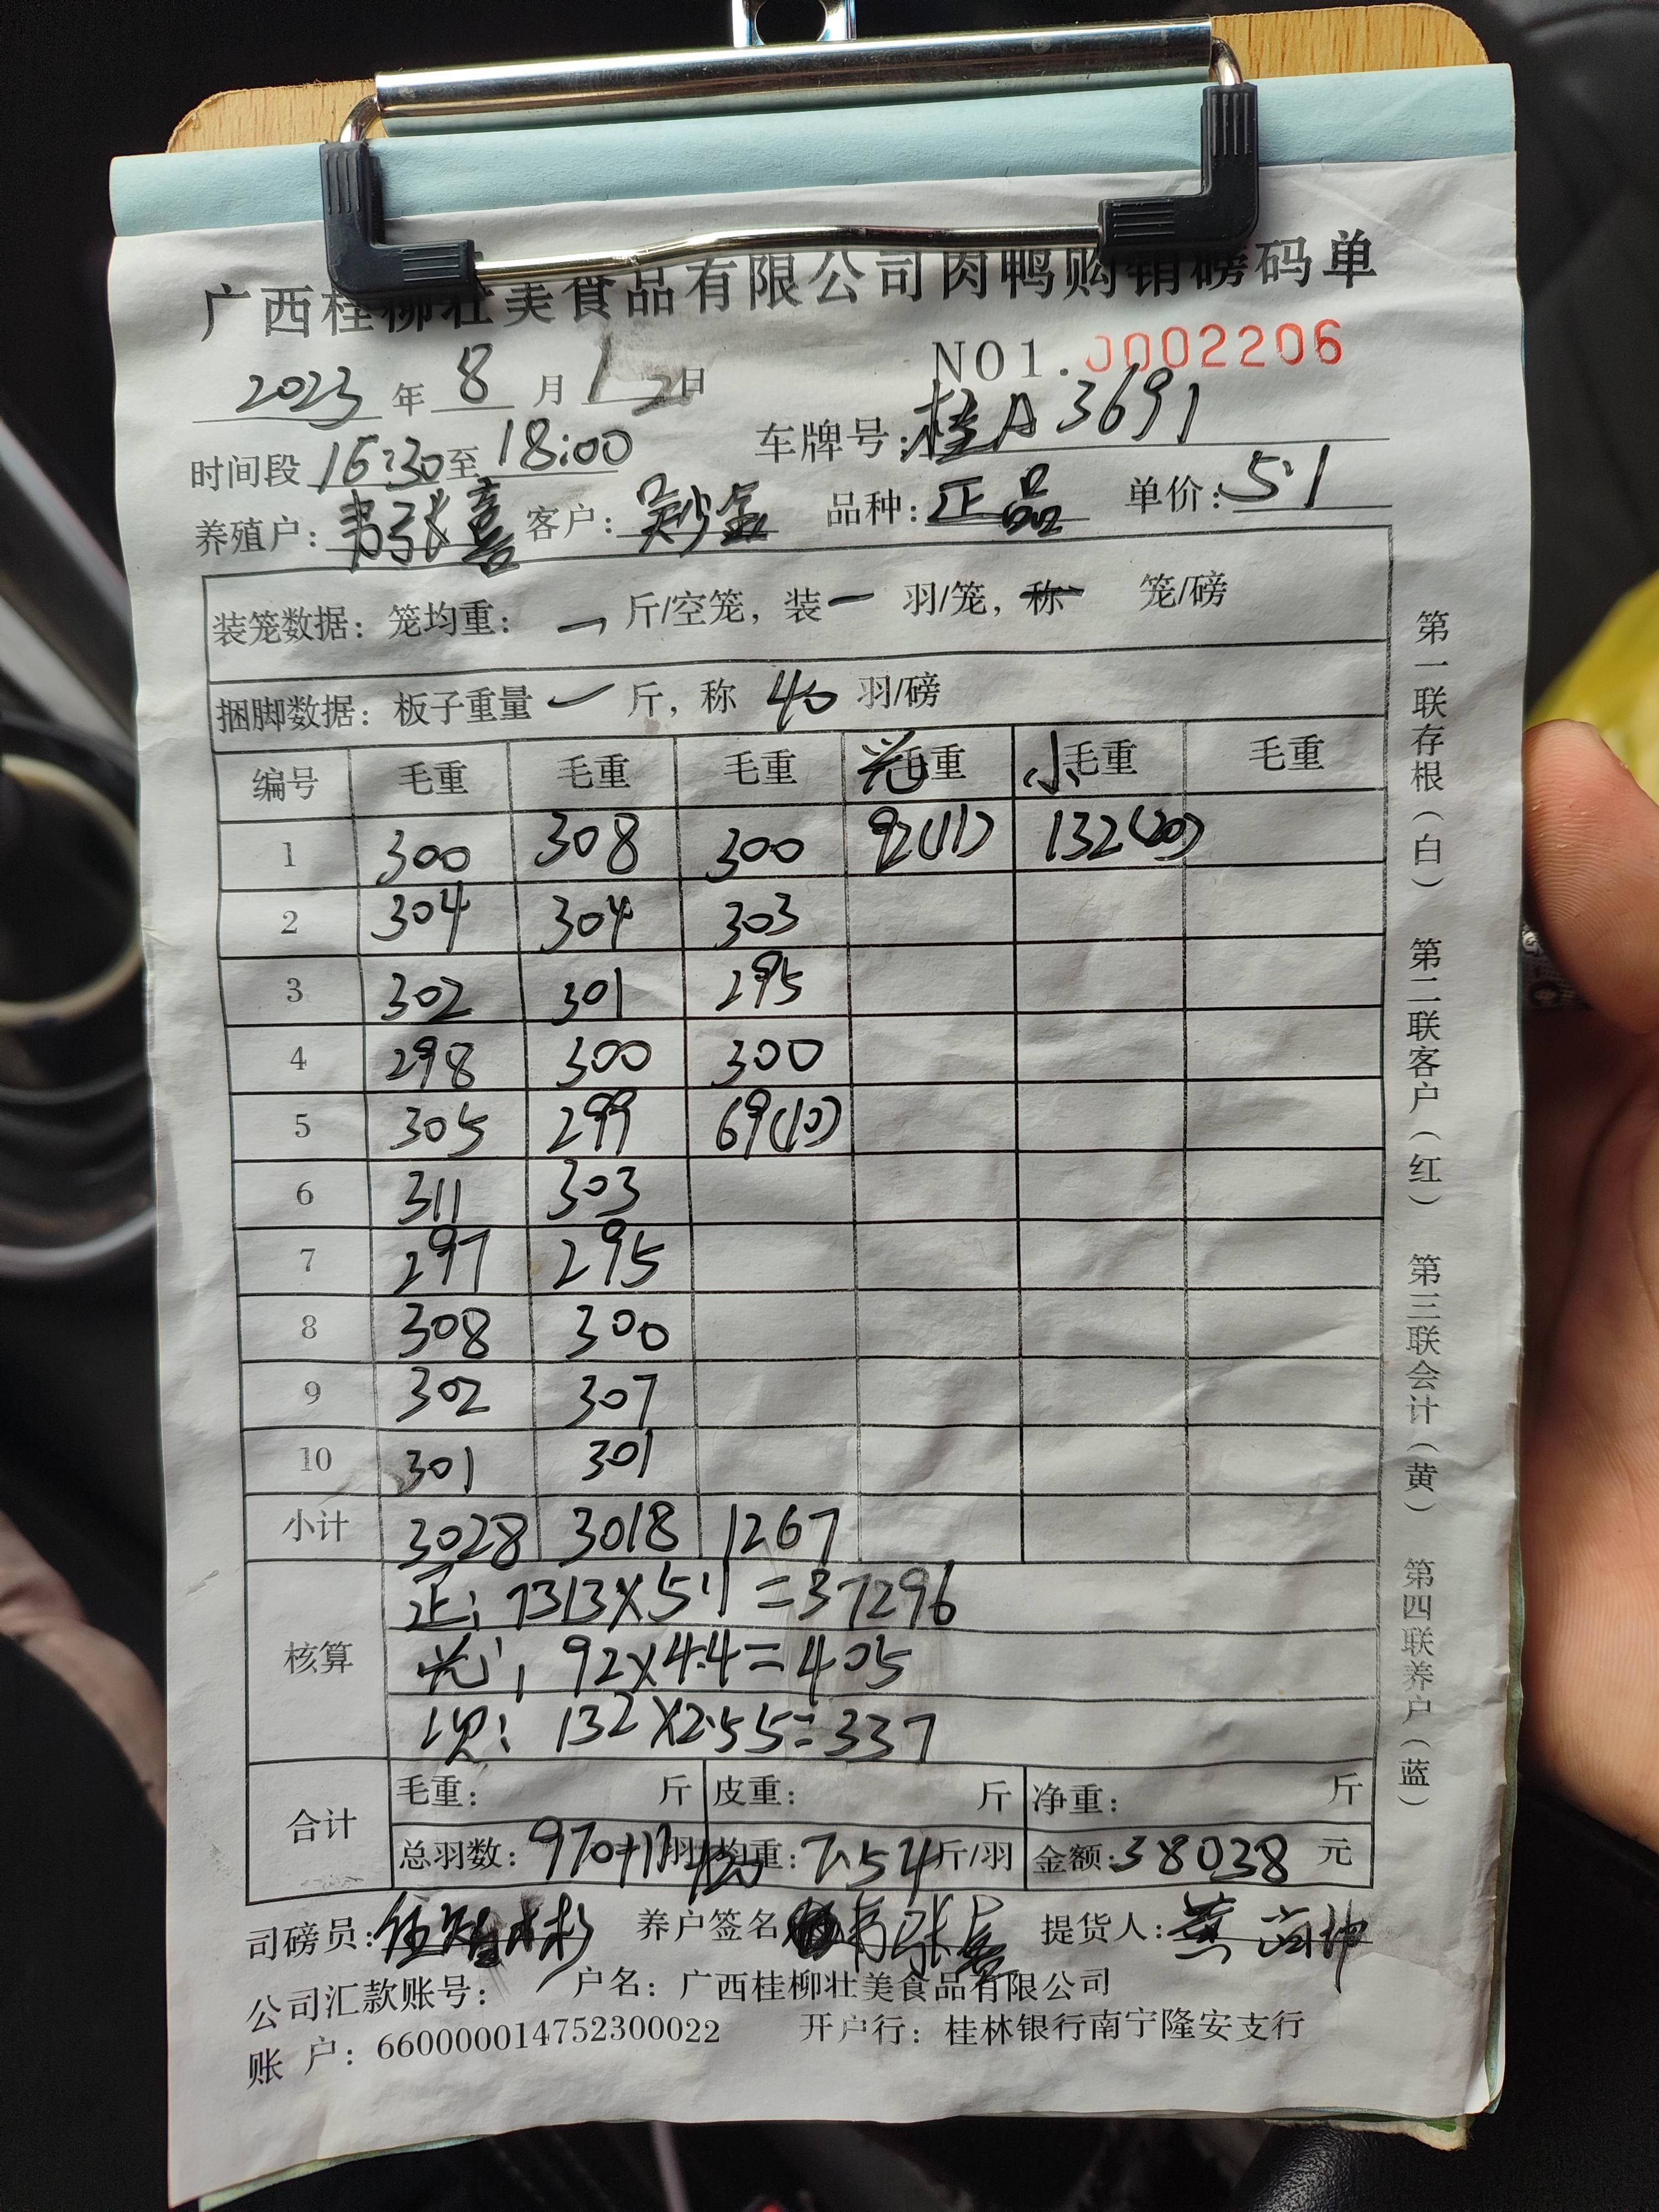 广西桂柳壮美食品有限公司肉鸭购销磅码单
NO1.0002206
2023 年 8 月 12 日
时间段 16:30 至 18:00 车牌号: 桂A3691
养殖户: 韦张喜 客户: 吴炒金 品种: 正品 单价: 5.1
装笼数据: 笼均重: 一 斤/空笼, 装 一 羽/笼, 称 一 笼/磅
捆脚数据: 板子重量 一 斤, 称 40 羽/磅
编号 毛重 毛重 毛重 毛重 小 毛重 毛重
1 300 308 300 92(11) 132(20)
2 304 304 303
3 302 301 295
4 298 300 300
5 305 299 69(10)
6 311 303
7 297 295
8 308 300
9 302 307
10 301 301
小计 3028 3018 1267
核算 正: 7313×5.1=37296
92×4.4=405
次: 132×2.55=337
合计 毛重: 斤 皮重: 斤 净重: 斤
总羽数: 970+11 羽 均重: 7.54 斤/羽 金额: 38038 元
司磅员: 养户签名 韦张喜 提货人:
公司汇款账号: 户名: 广西桂柳壮美食品有限公司
账 户: 660000014752300022 开户行: 桂林银行南宁隆安支行
第一联存根(白) 第二联客户(红) 第三联会计(黄) 第四联养户(蓝)